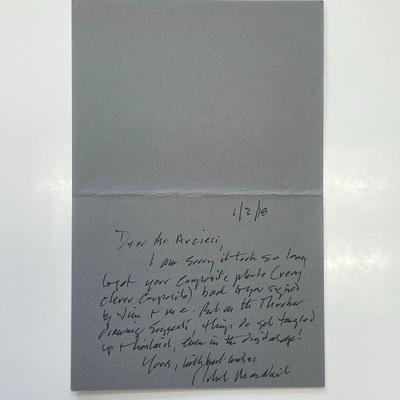 1/2/08
Dear Mr.
I am sorry it took so long
to get your composite photo (very
clever composite) back to you signed
by Jim + me. But as the Thurber
drawing suggests, things do get tangled
up + mislaid, even in the digital age!
Yours, with best wishes
Robert MacNeil